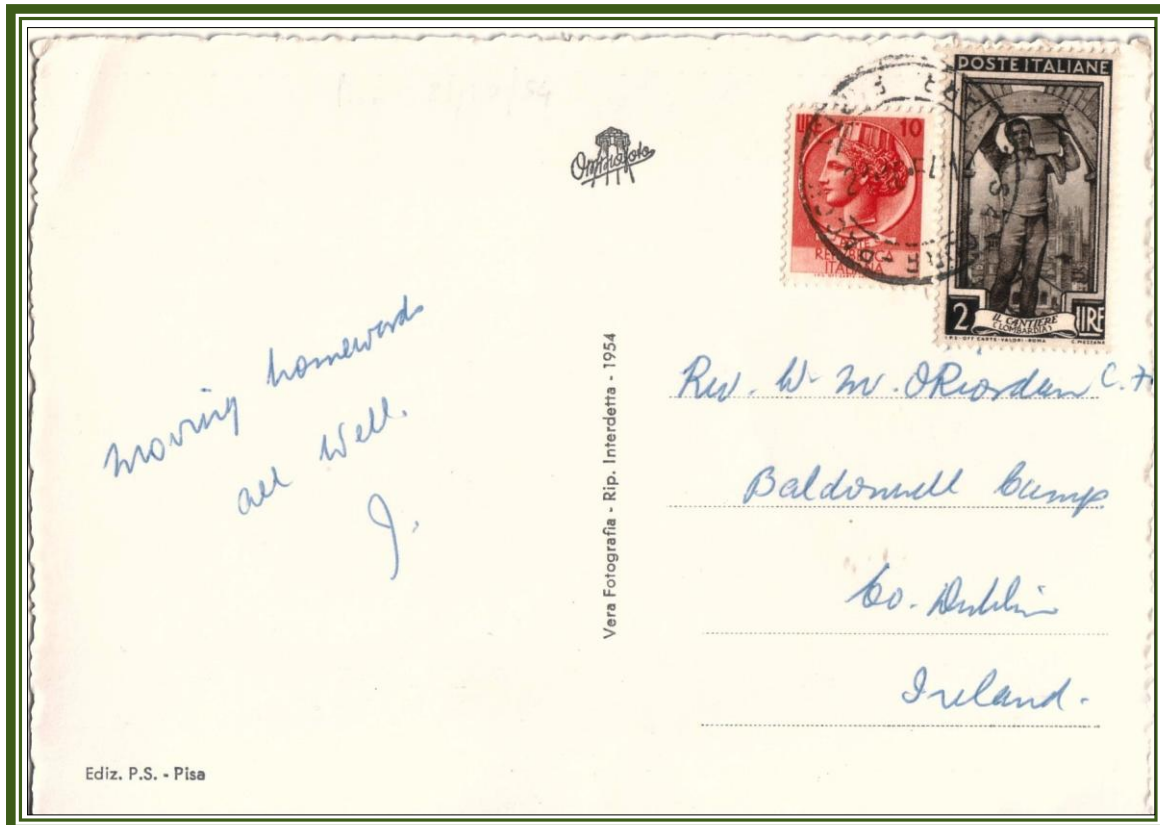 Omniafoto
LIRE 10
POSTE
REPUBBLICA
ITALIANA
POSTE ITALIANE
2 LIRE
IL CANTIERE
(LOMBARDIA)
I.P.S. OFF. CARTE-VALORI-ROMA C. MEZZANA
moving homewards
all well.
J.
Vera Fotografia - Rip. Interdetta - 1954
Rev. W. M. ORiordan C.F.
Baldonnell Camp
Co. Dublin
Ireland.
Ediz. P.S. - Pisa